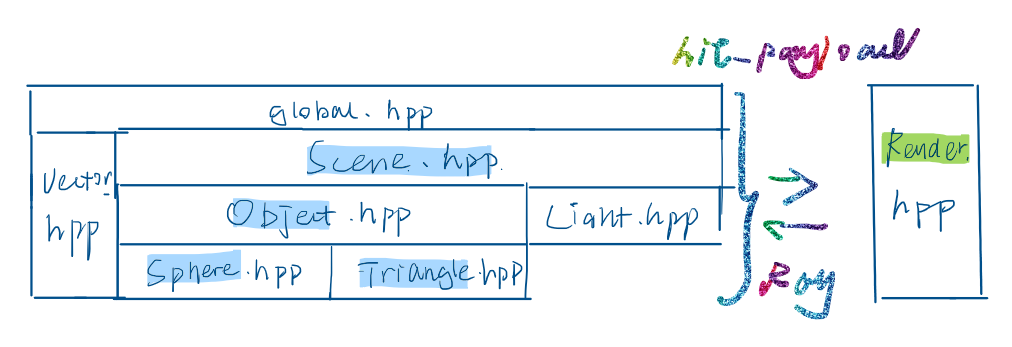 hit_payload
global.hpp
Scene.hpp
Vector.
hpp
Object.hpp
Light.hpp
Sphere.hpp
Triangle.hpp
Ray
Render.
hpp